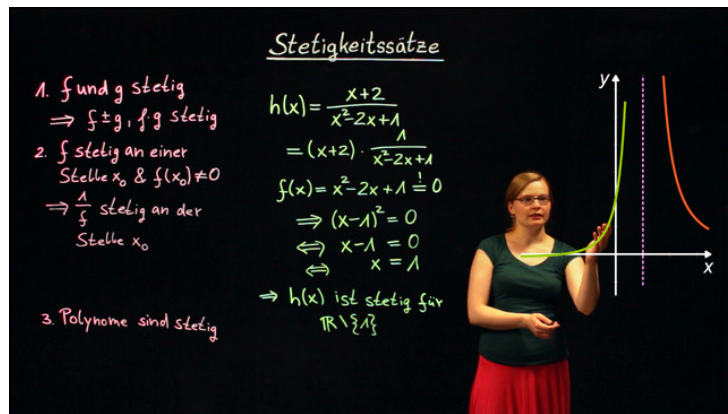 Stetigkeitssätze
1. f und g stetig
⇒ f±g, f·g stetig
2. f stetig an einer
Stelle x₀ & f(x₀)≠0
⇒ 1/f stetig an der
Stelle x₀
3. Polynome sind stetig
h(x) = (x+2)/(x²-2x+1)
= (x+2) · 1/(x²-2x+1)
f(x) = x²-2x+1 =! 0
⇒ (x-1)² = 0
⇔ x-1 = 0
⇔ x = 1
⇒ h(x) ist stetig für
ℝ\{1}
y
x